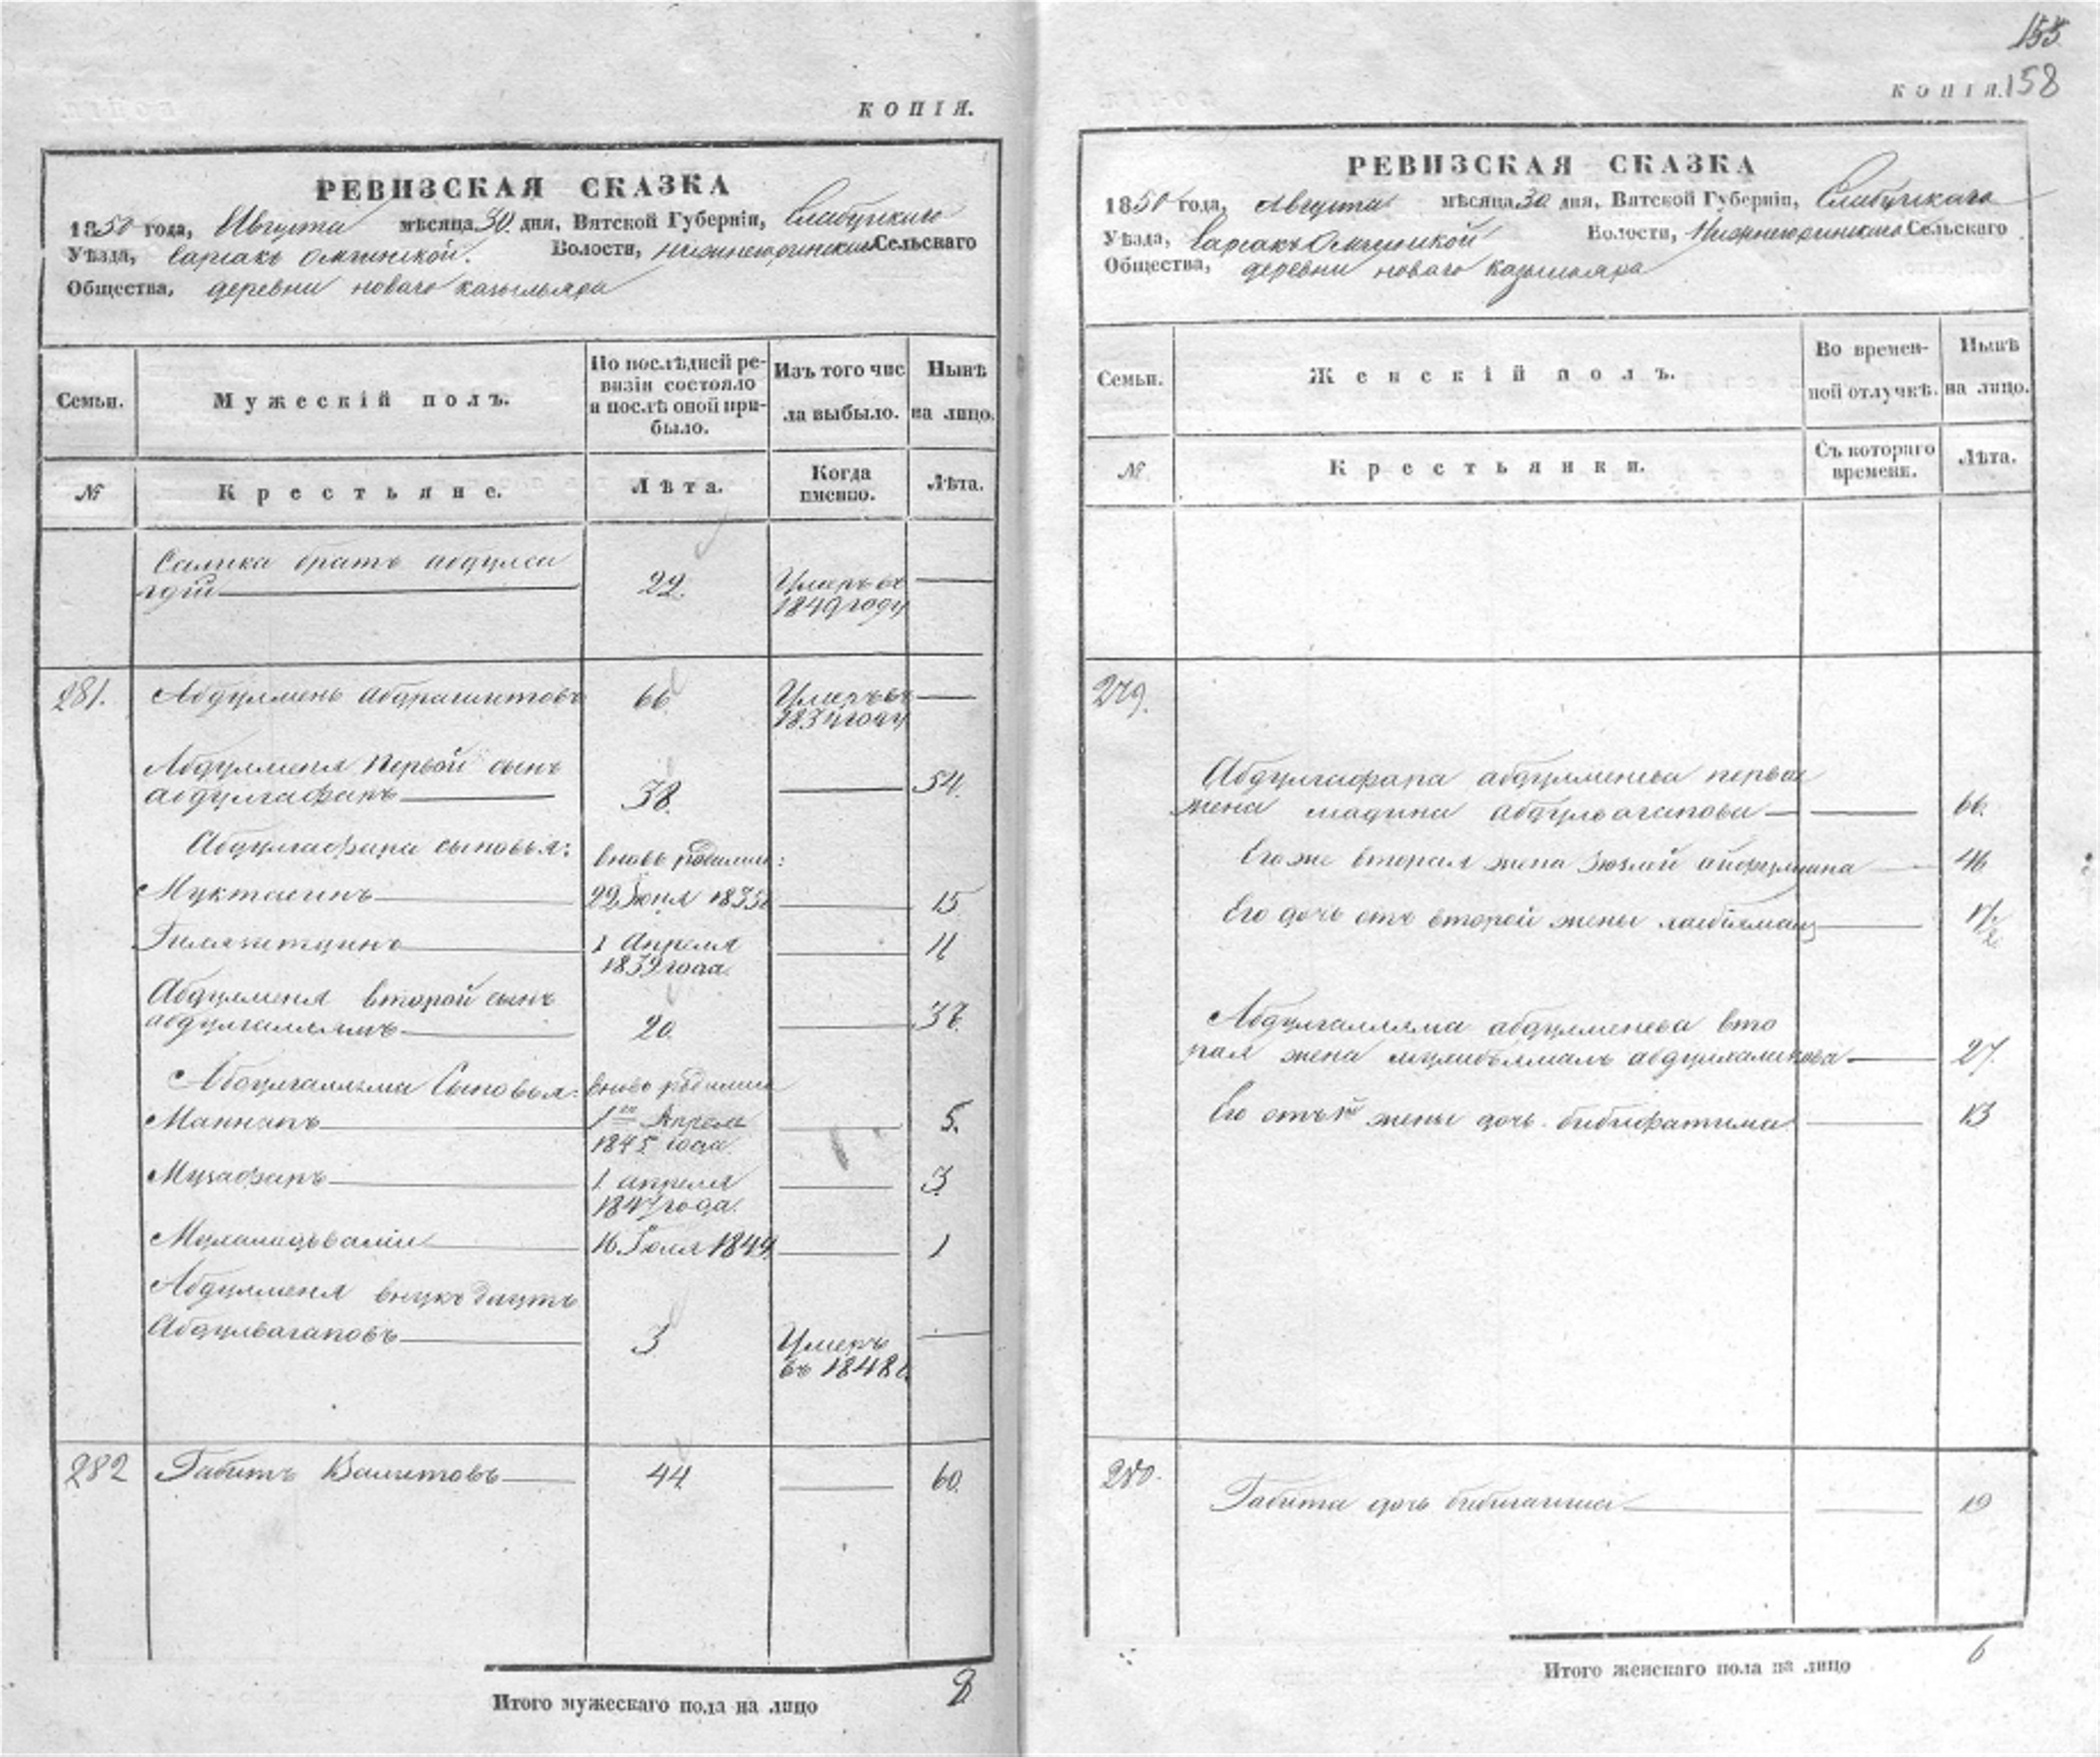 КОПІЯ.
РЕВИЗСКАЯ СКАЗКА
1850 года, Августа мѣсяца 30 дня, Вятской Губерніи, Елабугскаго
Уѣзда, Сарсакъ Омгинской. Волости, Сельскаго
Общества, деревни новаго
Семьи.
Мужескій полъ.
По послѣдней ре-
визіи состояло
и послѣ оной при-
было.
Изъ того чис
ла выбыло.
Нынѣ
на лицо.
№
Крестьяне.
Лѣта.
Когда
именно.
Лѣта.
братъ абдулса
22.
Умеръ въ
1849 году
281. Абдулмень абдрашитовъ 66 Умеръ въ
Абдулменя первой сынъ
абдулгафаръ 38. 54.
Абдулгафара сыновья: вновь рожденны:
Муктасинъ 22 Іюня 1835 15
1 Апреля 11
1839 года.
Абдулменя второй сынъ
абдулгаллямъ 20. 36.
Абдулгалляма Сыновья: вновь рожденны
Маннапъ 1го Апреля 5.
1845 года.
Музафаръ 1 апреля 3.
1847 года.
16 Іюля 1849 1
Абдулменя внукъ Даутъ
Абдулвагаповъ 3 Умеръ
въ 1848 г.
282 Габитъ 44 60.
Итого мужескаго пола на лицо 8
155
КОПІЯ. 158
РЕВИЗСКАЯ СКАЗКА
1850 года, Августа мѣсяца 30 дня, Вятской Губерніи, Елабугскаго
Уѣзда, Сарсакъ Омгинской Волости, Сельскаго
Общества, деревни новаго
Семьи.
Женскій полъ.
Во времен-
ной отлучкѣ.
Нынѣ
на лицо.
№
Крестьянки.
Съ котораго
времени.
Лѣта.
279.
Абдулгафара абдулменева первая
жена мадина абдулвагапова 66.
Его же вторая жена 46
Его дочь отъ второй жены 17
Абдулгалляма абдулменева вто
рая жена абдулхаликова 27.
Его отъ 1й жены дочь бибифатима 13
280.
Габита дочь 19
Итого женскаго пола на лицо 6